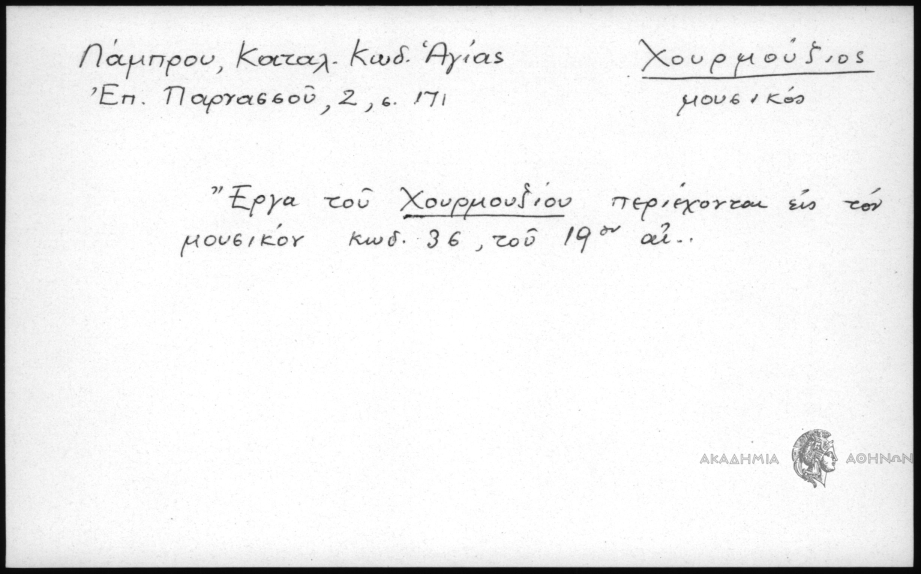 Λάμπρου, Καταλ. Κωδ. Ἁγίας
Ἐπ. Παρνασσοῦ, 2, σ. 171
Χουρμούζιος
μουσικός
Ἔργα τοῦ Χουρμουζίου περιέχονται εἰς τόν
μουσικόν κωδ. 36, τοῦ 19ου αἰ..
ΑΚΑΔΗΜΙΑ ΑΘΗΝΩΝ